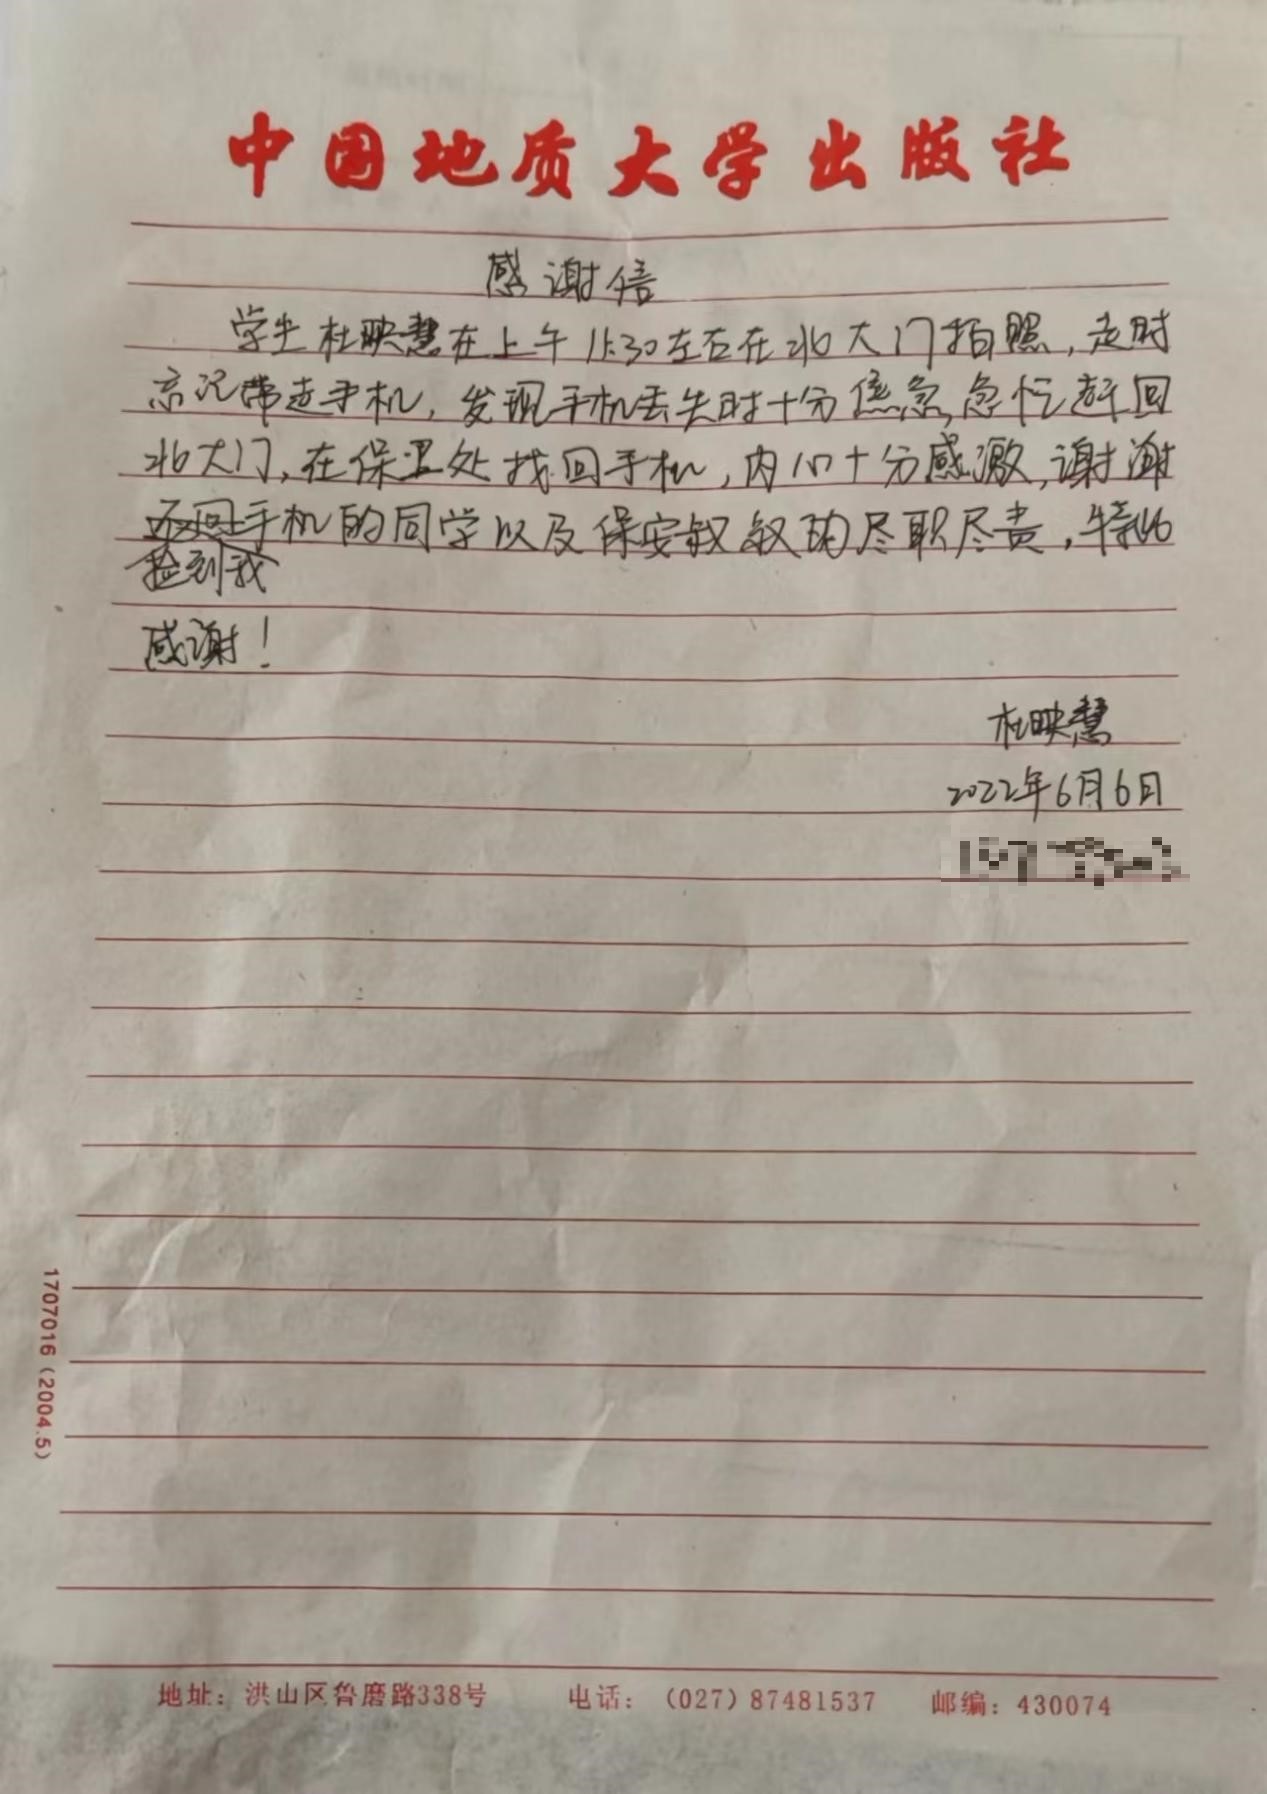 中国地质大学出版社
感谢信
学生杜映慧在上午11:30左右在北大门拍照，走时
忘记带走手机，发现手机丢失时十分焦急，急忙赶回
北大门，在保卫处找回手机，内心十分感激，谢谢
还回手机的同学以及保安叔叔的尽职尽责，特此
捡到我
感谢！
杜映慧
2022年6月6日
1707016（2004.5）
地址：洪山区鲁磨路338号 电话：（027）87481537 邮编：430074